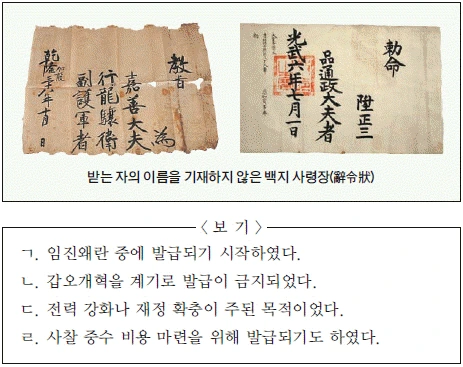 教旨
爲
嘉善大夫
行龍驤衛
副護軍者
乾隆 年十月 日
勅命
陞正三
品通政大夫者
光武六年七月一日
받는 자의 이름을 기재하지 않은 백지 사령장(辭令狀)
〈 보 기 〉
ㄱ. 임진왜란 중에 발급되기 시작하였다.
ㄴ. 갑오개혁을 계기로 발급이 금지되었다.
ㄷ. 전력 강화나 재정 확충이 주된 목적이었다.
ㄹ. 사찰 중수 비용 마련을 위해 발급되기도 하였다.